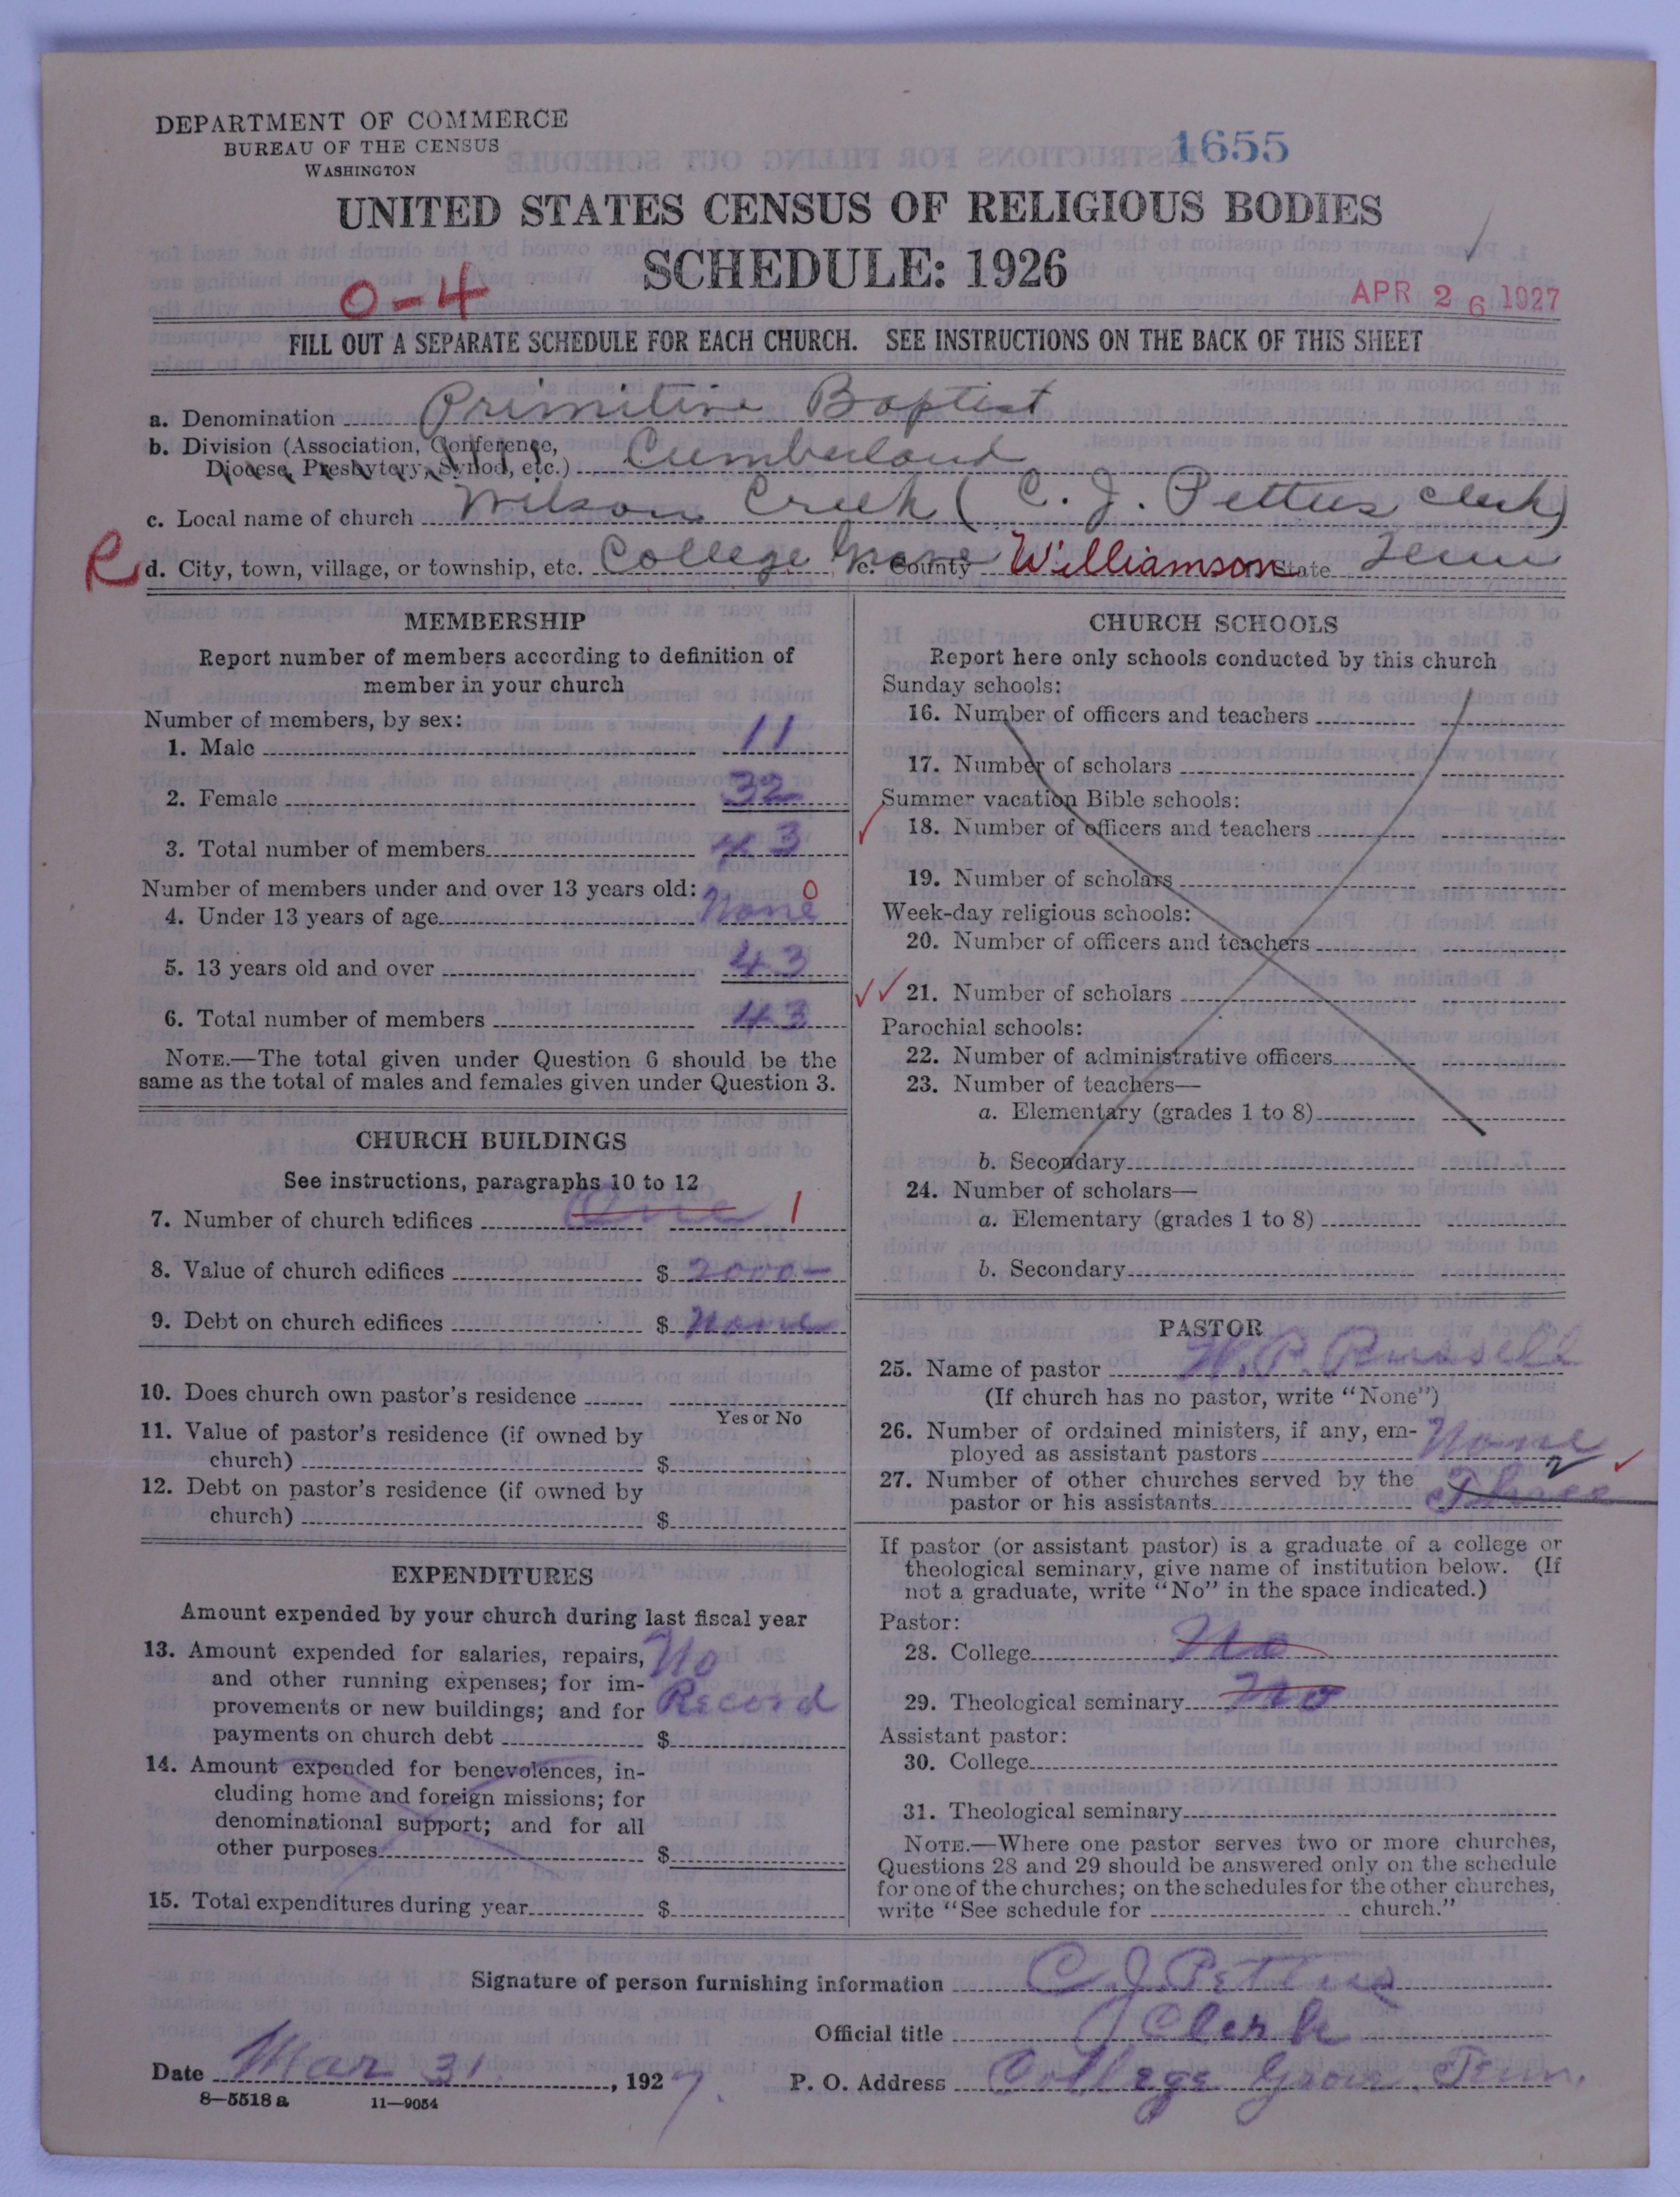 DEPARTMENT OF COMMERCE
BUREAU OF THE CENSUS
WASHINGTON
1655
UNITED STATES CENSUS OF RELIGIOUS BODIES
SCHEDULE: 1926
0-4
APR 26 1927
FILL OUT A SEPARATE SCHEDULE FOR EACH CHURCH. SEE INSTRUCTIONS ON THE BACK OF THIS SHEET
a. Denomination Primitive Baptist
b. Division (Association, Conference,
Diocese, Presbytery, Synod, etc.) Cumberland
c. Local name of church Wilson Creek (C. J. Pettus Clerk)
R d. City, town, village, or township, etc. College Grove e. County Williamson f. State Tenn
MEMBERSHIP
Report number of members according to definition of
member in your church
Number of members, by sex:
1. Male 11
2. Female 32
3. Total number of members 43
Number of members under and over 13 years old: 0
4. Under 13 years of age None
5. 13 years old and over 43
6. Total number of members 43
NOTE.—The total given under Question 6 should be the
same as the total of males and females given under Question 3.
CHURCH BUILDINGS
See instructions, paragraphs 10 to 12
7. Number of church edifices One 1
8. Value of church edifices $ 2000—
9. Debt on church edifices $ None
10. Does church own pastor's residence
Yes or No
11. Value of pastor's residence (if owned by
church) $
12. Debt on pastor's residence (if owned by
church) $
EXPENDITURES
Amount expended by your church during last fiscal year
13. Amount expended for salaries, repairs, No
and other running expenses; for im-
provements or new buildings; and for Record
payments on church debt $
14. Amount expended for benevolences, in-
cluding home and foreign missions; for
denominational support; and for all
other purposes $
15. Total expenditures during year $
CHURCH SCHOOLS
Report here only schools conducted by this church
Sunday schools:
16. Number of officers and teachers
17. Number of scholars
Summer vacation Bible schools:
18. Number of officers and teachers
19. Number of scholars
Week-day religious schools:
20. Number of officers and teachers
21. Number of scholars
Parochial schools:
22. Number of administrative officers
23. Number of teachers—
a. Elementary (grades 1 to 8)
b. Secondary
24. Number of scholars—
a. Elementary (grades 1 to 8)
b. Secondary
PASTOR
25. Name of pastor W. P. Russell
(If church has no pastor, write "None")
26. Number of ordained ministers, if any, em-
ployed as assistant pastors None
27. Number of other churches served by the 2
pastor or his assistants Three
If pastor (or assistant pastor) is a graduate of a college or
theological seminary, give name of institution below. (If
not a graduate, write "No" in the space indicated.)
Pastor:
28. College No
29. Theological seminary No
Assistant pastor:
30. College
31. Theological seminary
NOTE.—Where one pastor serves two or more churches,
Questions 28 and 29 should be answered only on the schedule
for one of the churches; on the schedules for the other churches,
write "See schedule for church."
Signature of person furnishing information C J Pettus
Official title Clerk
Date Mar 31, 1927. P. O. Address College Grove. Tenn.
8—5518 a 11—9054